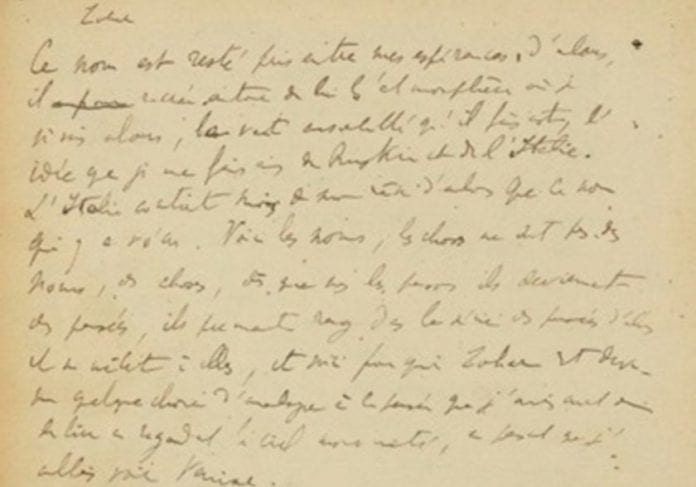 Zohar
Ce nom est resté pris entre mes espérances d'alors,
il recrée autour de lui l'atmosphère où je
vivais alors, le vent ensoleillé qu'il faisait, l'
idée que je me faisais de Ruskin et de l'Italie.
L'Italie contient moins de mon rêve d'alors que ce nom
qui y a vécu. Voici les noms, les choses ne sont pas des
noms, les choses, dès que nous les pensons ils deviennent
des pensées, ils prennent rang dans la série des pensées d'alors
et se mêlent à elles, et voici pourquoi Zohar est deve-
nu quelque chose d'analogue à la pensée que j'avais avant
de lire en regardant le ciel tourmenté, en pensant que j'
allais voir Venise.